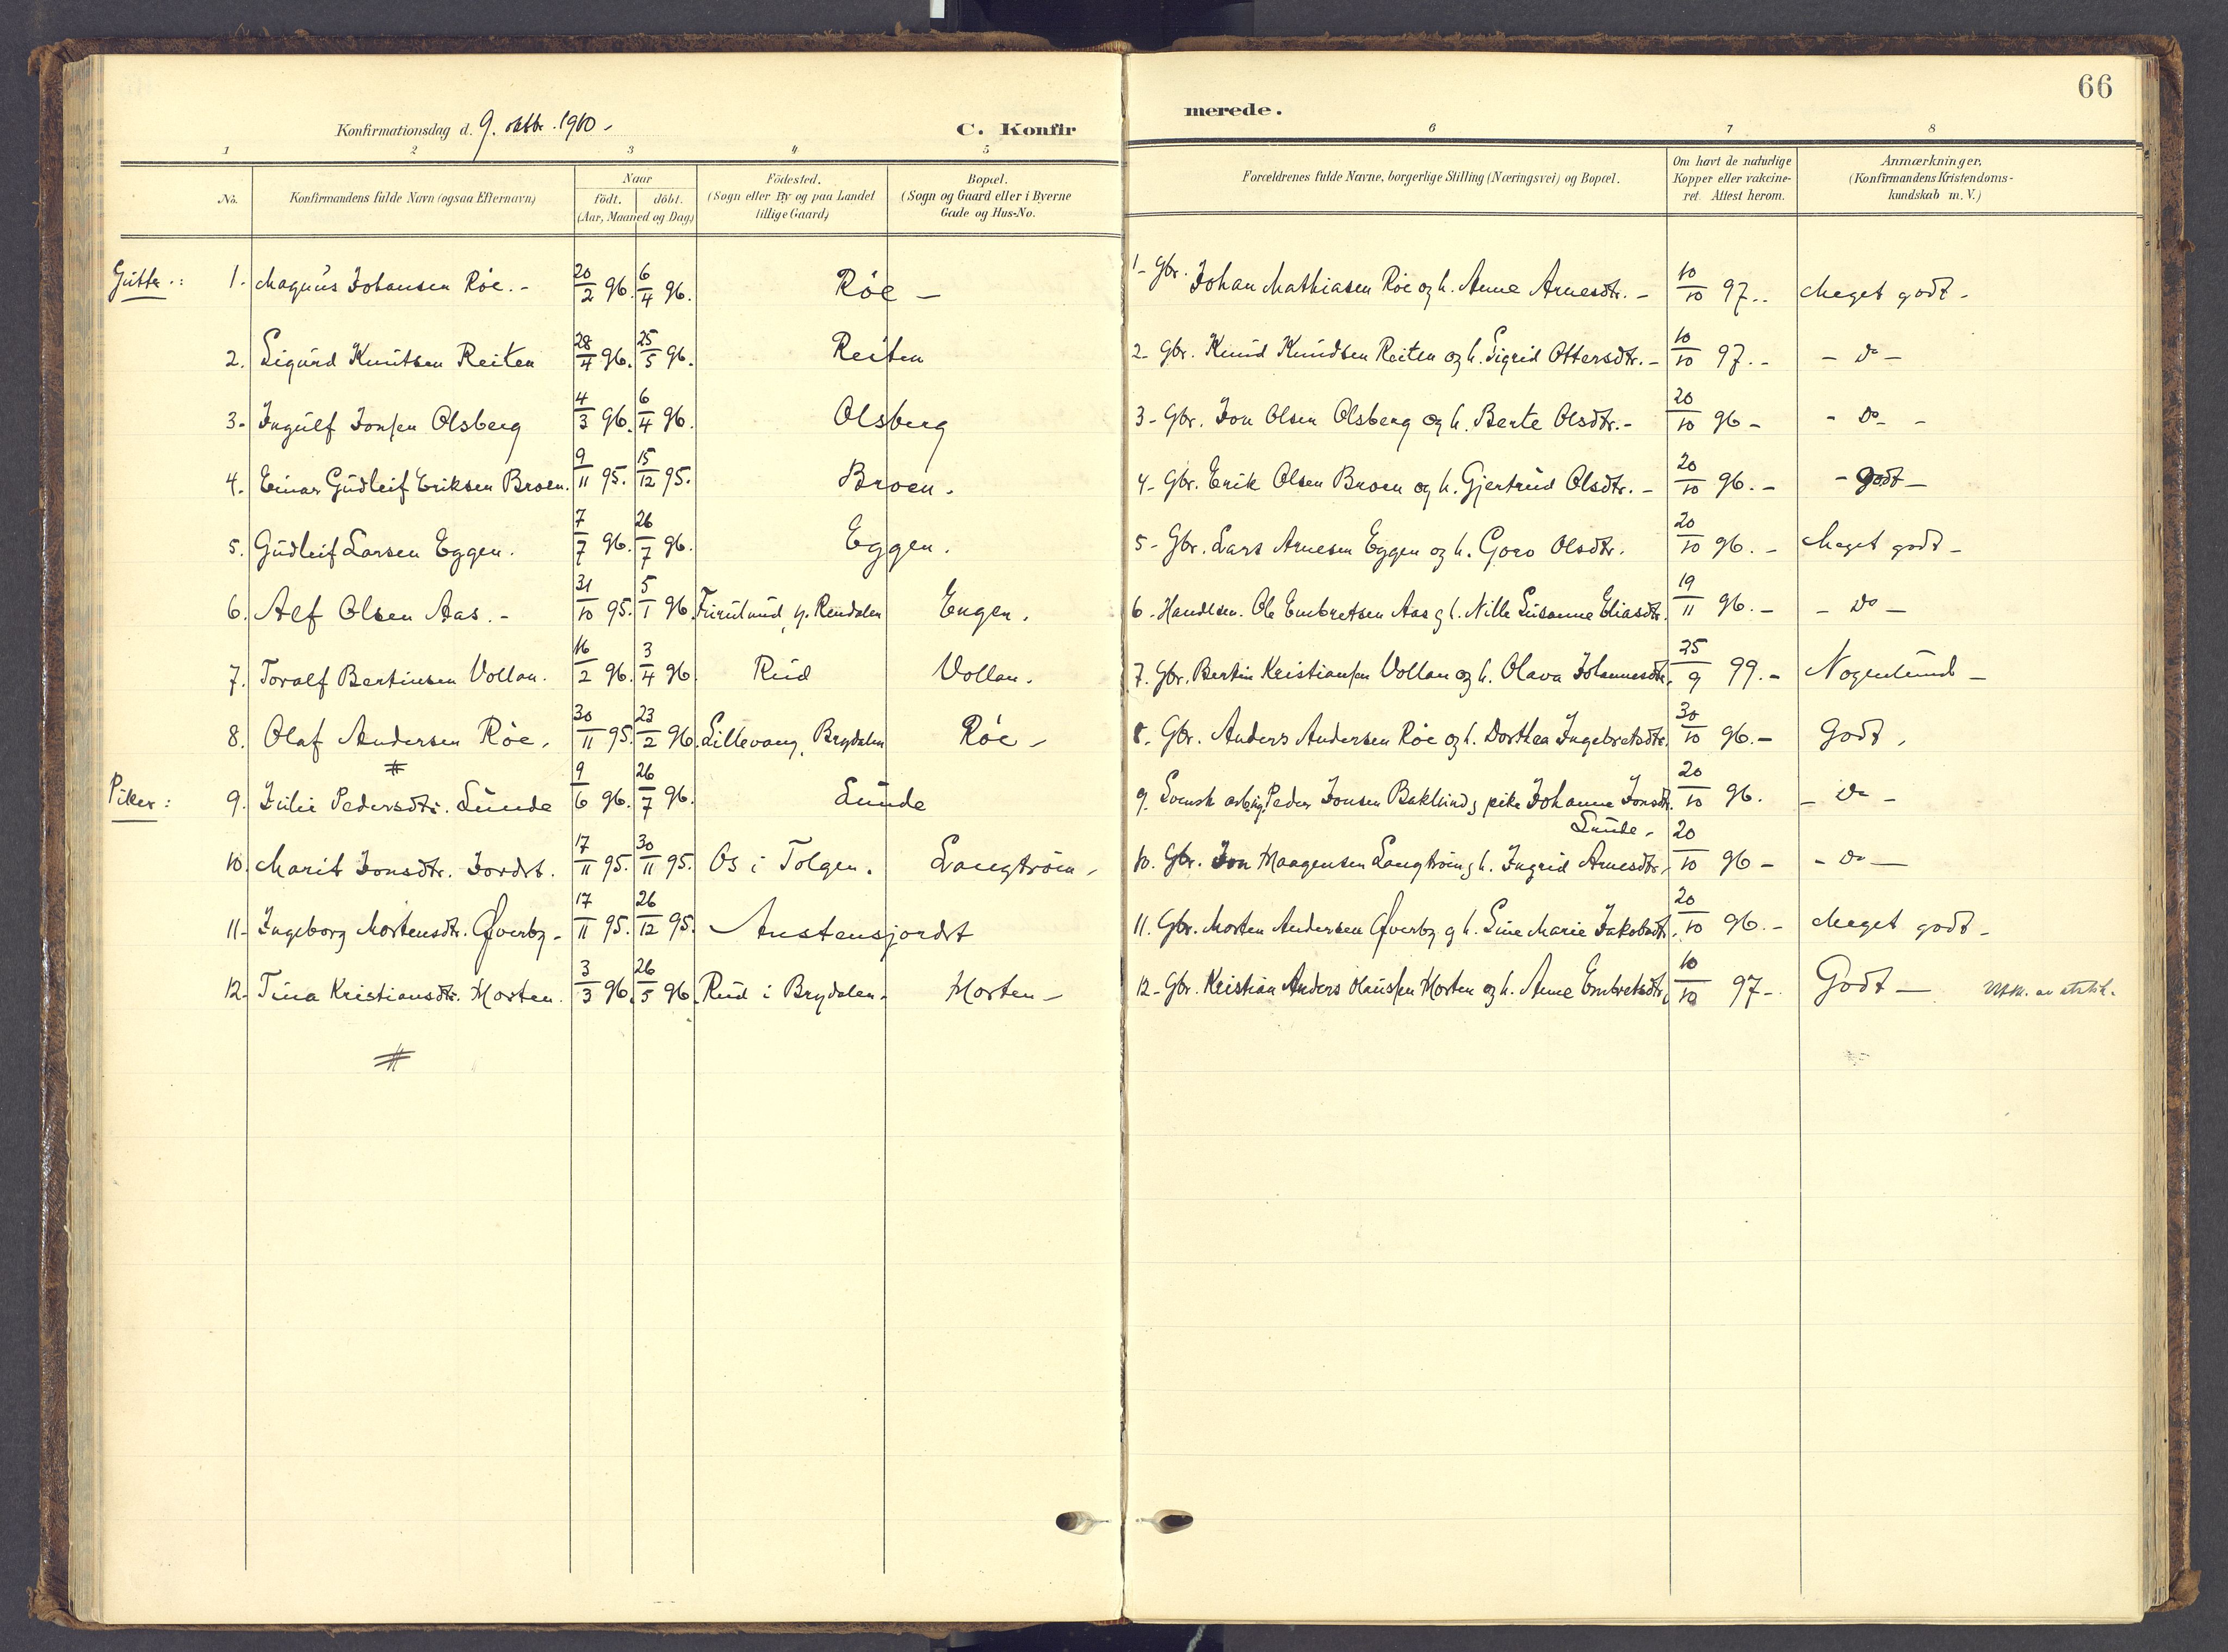 66
Konfirmationsdag d. 9. oktbr. 1910. C. Konfir merede.
1 2 3 4 5 6 7 8
No. Konfirmandens fulde Navn (ogsaa Efternavn) Naar födt. döbt. (Aar, Maaned og Dag) Födested. (Sogn eller By og paa Landet tillige Gaard) Bopæl. (Sogn og Gaard eller i Byerne Gade og Hus-No. Forældrenes fulde Navne, borgerlige Stilling (Næringsvei) og Bopæl. Om havt de naturlige Kopper eller vakcineret. Attest herom. Anmærkninger, (Konfirmandens Kristendomskundskab m. V.)
Gutter: 1. Magnus Johansen Röe. - 20/2 96. 6/4 96. Röe - 1- Gbr. Johan Mathiasen Röe og h. Anne Arnesdtr. - 10/10 97.- Meget godt -
2. Sigurd Knutsen Reiten 28/4 96. 25/5 96. Reiten 2- Gbr. Knud Knudsen Reiten og h. Sigrid Ottersdtr. - 10/10 97.- - do -
3- Ingulf Jonsen Olsberg 4/3 96. 6/4 96. Olsberg 3- Gbr. Jon Olsen Olsberg og h. Berte Olsdtr. - 20/10 96 - - do -
4. Einar Gudleif Eriksen Broen. 9/11 95. 15/12 95. Broen. 4- Gbr. Erik Olsen Broen og h. Gjertrud Olsdtr. - 20/10 96.- - godt -
5. Gudleif Larsen Eggen. 7/7 96. 26/7 96. Eggen. 5- Gbr. Lars Arnesen Eggen og h. Goro Olsdtr. 20/10 96.- Meget godt -
6. Alf Olsen Aas. - 31/10 95. 5/1 96. Furulund, y. Rendalen Engen. 6- Handlsm. Ole Embretsen Aas og h. Nille Susanne Eliasdtr. 19/11 96.- - do -
7. Toralf Bertinsen Vollan. 16/2 96. 3/4 96 Rud Vollan. 7. Gbr. Bertin Kristiansen Vollan og h. Olava Johannesdtr. 25/9 99.- Nogenlund -
8. Olaf Andersen Röe. 30/11 95. 23/2 96. Lillevang, Brydalen Röe - 8. Gbr. Anders Andersen Röe og h. Dorthea Ingebretsdtr. 30/10 96.- Godt.
#
Piker: 9. Julie Pedersdtr. Lunde 9/6 96. 26/7 96. Lunde 9. Svensk arb. Peder Jonsen Baklund, pike Johanne Jonsdtr. 20/10 96. - do -
Lunde.
10. Marit Jonsdtr. Jordet. 17/11 95. 30/11 95. Os i Tolgen. Langtröen. 10. Gbr. Jon Haagensen Langtröen og h. Ingrid Arnesdtr. 20/10 96 - - do -
11- Ingeborg Mortensdtr. Øverby - 17/11 95. 26/12 95. Austensjordet 11. Gbr. Morten Andersen Øverby og h. Line Marie Jakobsdtr. 20/10 96.- Meget godt -
12- Tina Kristiansdtr. Horten. 3/3 96. 26/5 96. Rud i Brydalen. Horten - 12- Gbr. Kristian Anders Hansen Horten og h. Anne Embretsdtr. 10/10 97- Godt -
#